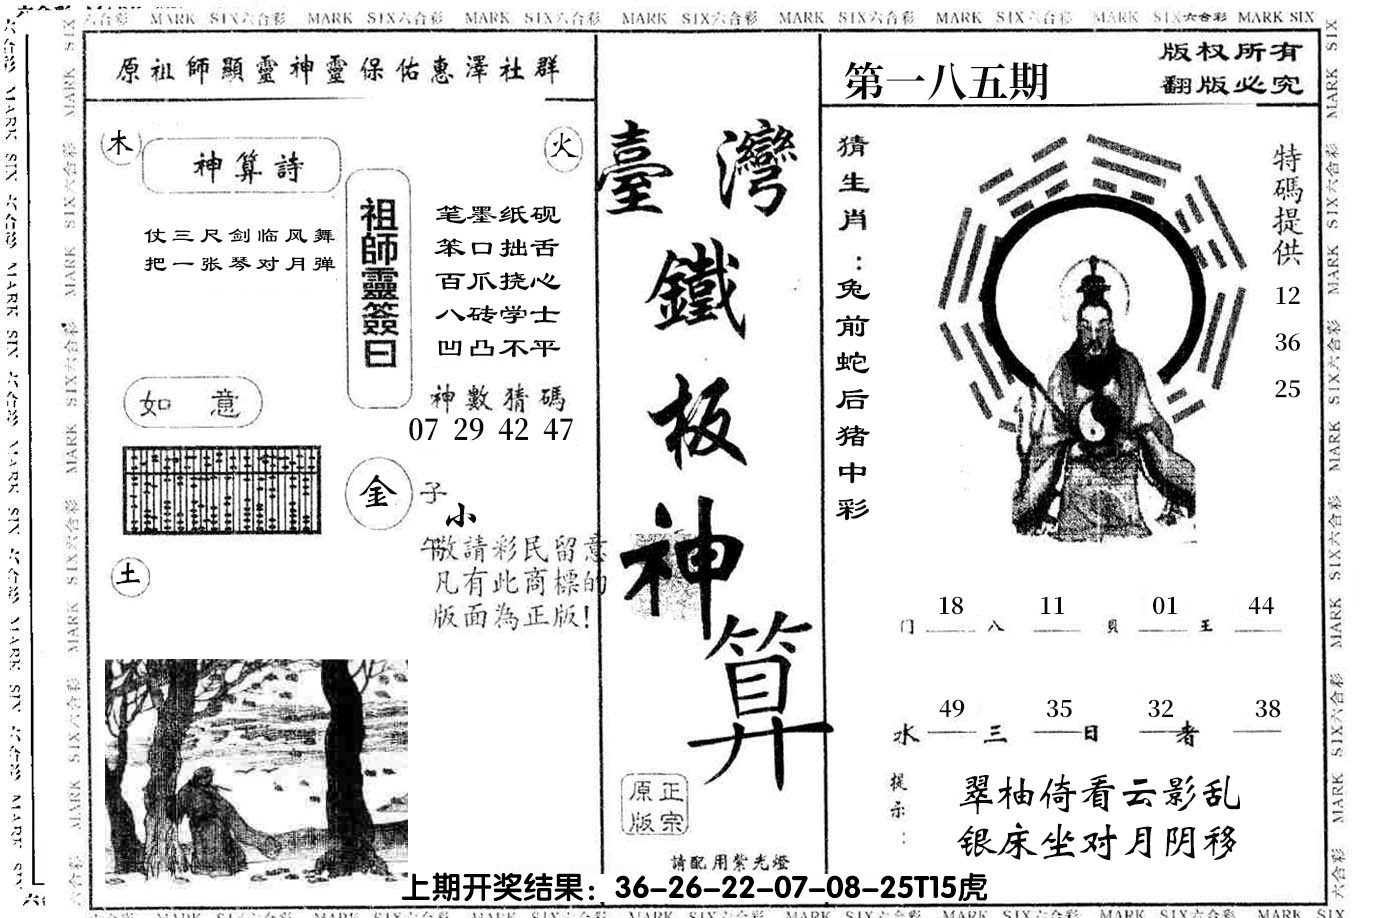 MARK SIX六合彩 MARK SIX六合彩 MARK SIX六合彩 MARK SIX六合彩 MARK SIX六合彩 MARK SIX六合彩 MARK SIX六合彩 MARK SIX
原祖師顯靈神靈保佑惠澤社群
木
火
神算詩
仗三尺剑临风舞
把一张琴对月弹
祖師靈簽曰
笔墨纸砚
笨口拙舌
百爪挠心
八砖学士
凹凸不平
神數猜碼
07 29 42 47
如意
金
子
小
午
敬請彩民留意
凡有此商標的
版面為正版!
土
臺灣
鐵
板
神
算
正宗
原版
請配用紫光燈
第一八五期
版权所有
翻版必究
猜生肖:兔前蛇后猪中彩
特碼提供
12
36
25
18 11 01 44
门 八 貝 王
49 35 32 38
水 三 日 者
提示:
翠柚倚看云影乱
银床坐对月阴移
上期开奖结果：36-26-22-07-08-25T15虎